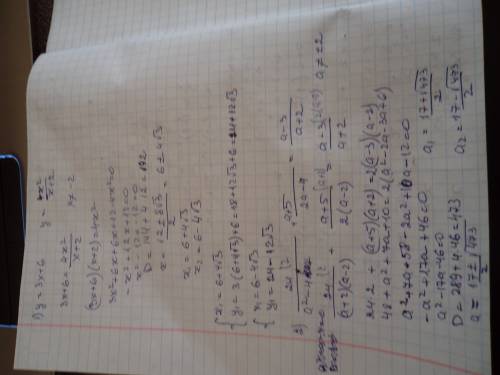 1) y = 3x+6 y = 4x²/(x+2)
3x+6 = 4x²/(x+2) x≠-2
(3x+6)(x+2) = 4x²
3x²+6x+6x+12-4x²=0
-x²+12x+12=0
x²-12x-12=0
D=144+4·12=192
x = (12±8√3)/2 = 6±4√3
x₁=6+4√3
x₂=6-4√3
{ x₁=6+4√3
y₁=3(6+4√3)+6=18+12√3+6=24+12√3
{ x₂=6-4√3
y₁=24-12√3
2) 24/(a²-4) + (a+5)/(2a-4) = (a-3)/(a+2)
24/((a+2)(a-2)) + (a+5)/(2(a-2)) = (a-3)/(a+2) a≠±2
24·2+(a+5)(a+2)=2(a-3)(a-2)
48+a²+2a+5a+10=2(a²-2a-3a+6)
a²+7a+58-2a²+10a-12=0
-a²+17a+46=0
a²-17a-46=0
D=289+4·46=473
a=(17±√473)/2
a₁=(17+√473)/2
a₂=(17-√473)/2